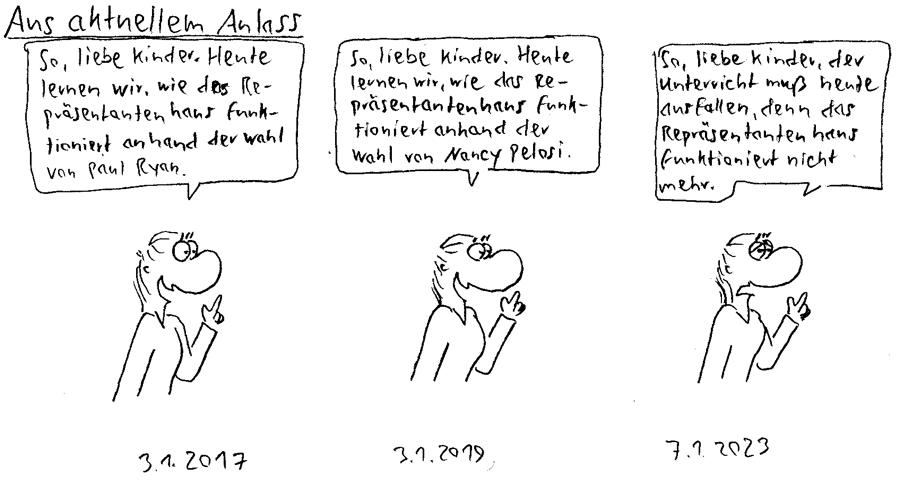 Aus aktuellem Anlass
So, liebe Kinder. Heute
lernen wir, wie das Re-
präsentantenhaus funk-
tioniert anhand der Wahl
von Paul Ryan.
So, liebe Kinder. Heute
lernen wir, wie das Re-
präsentantenhaus funk-
tioniert anhand der
Wahl von Nancy Pelosi.
So, liebe Kinder, der
Unterricht muß heute
ausfallen, denn das
Repräsentantenhaus
funktioniert nicht
mehr.
3.1.2017
3.1.2019
7.1.2023